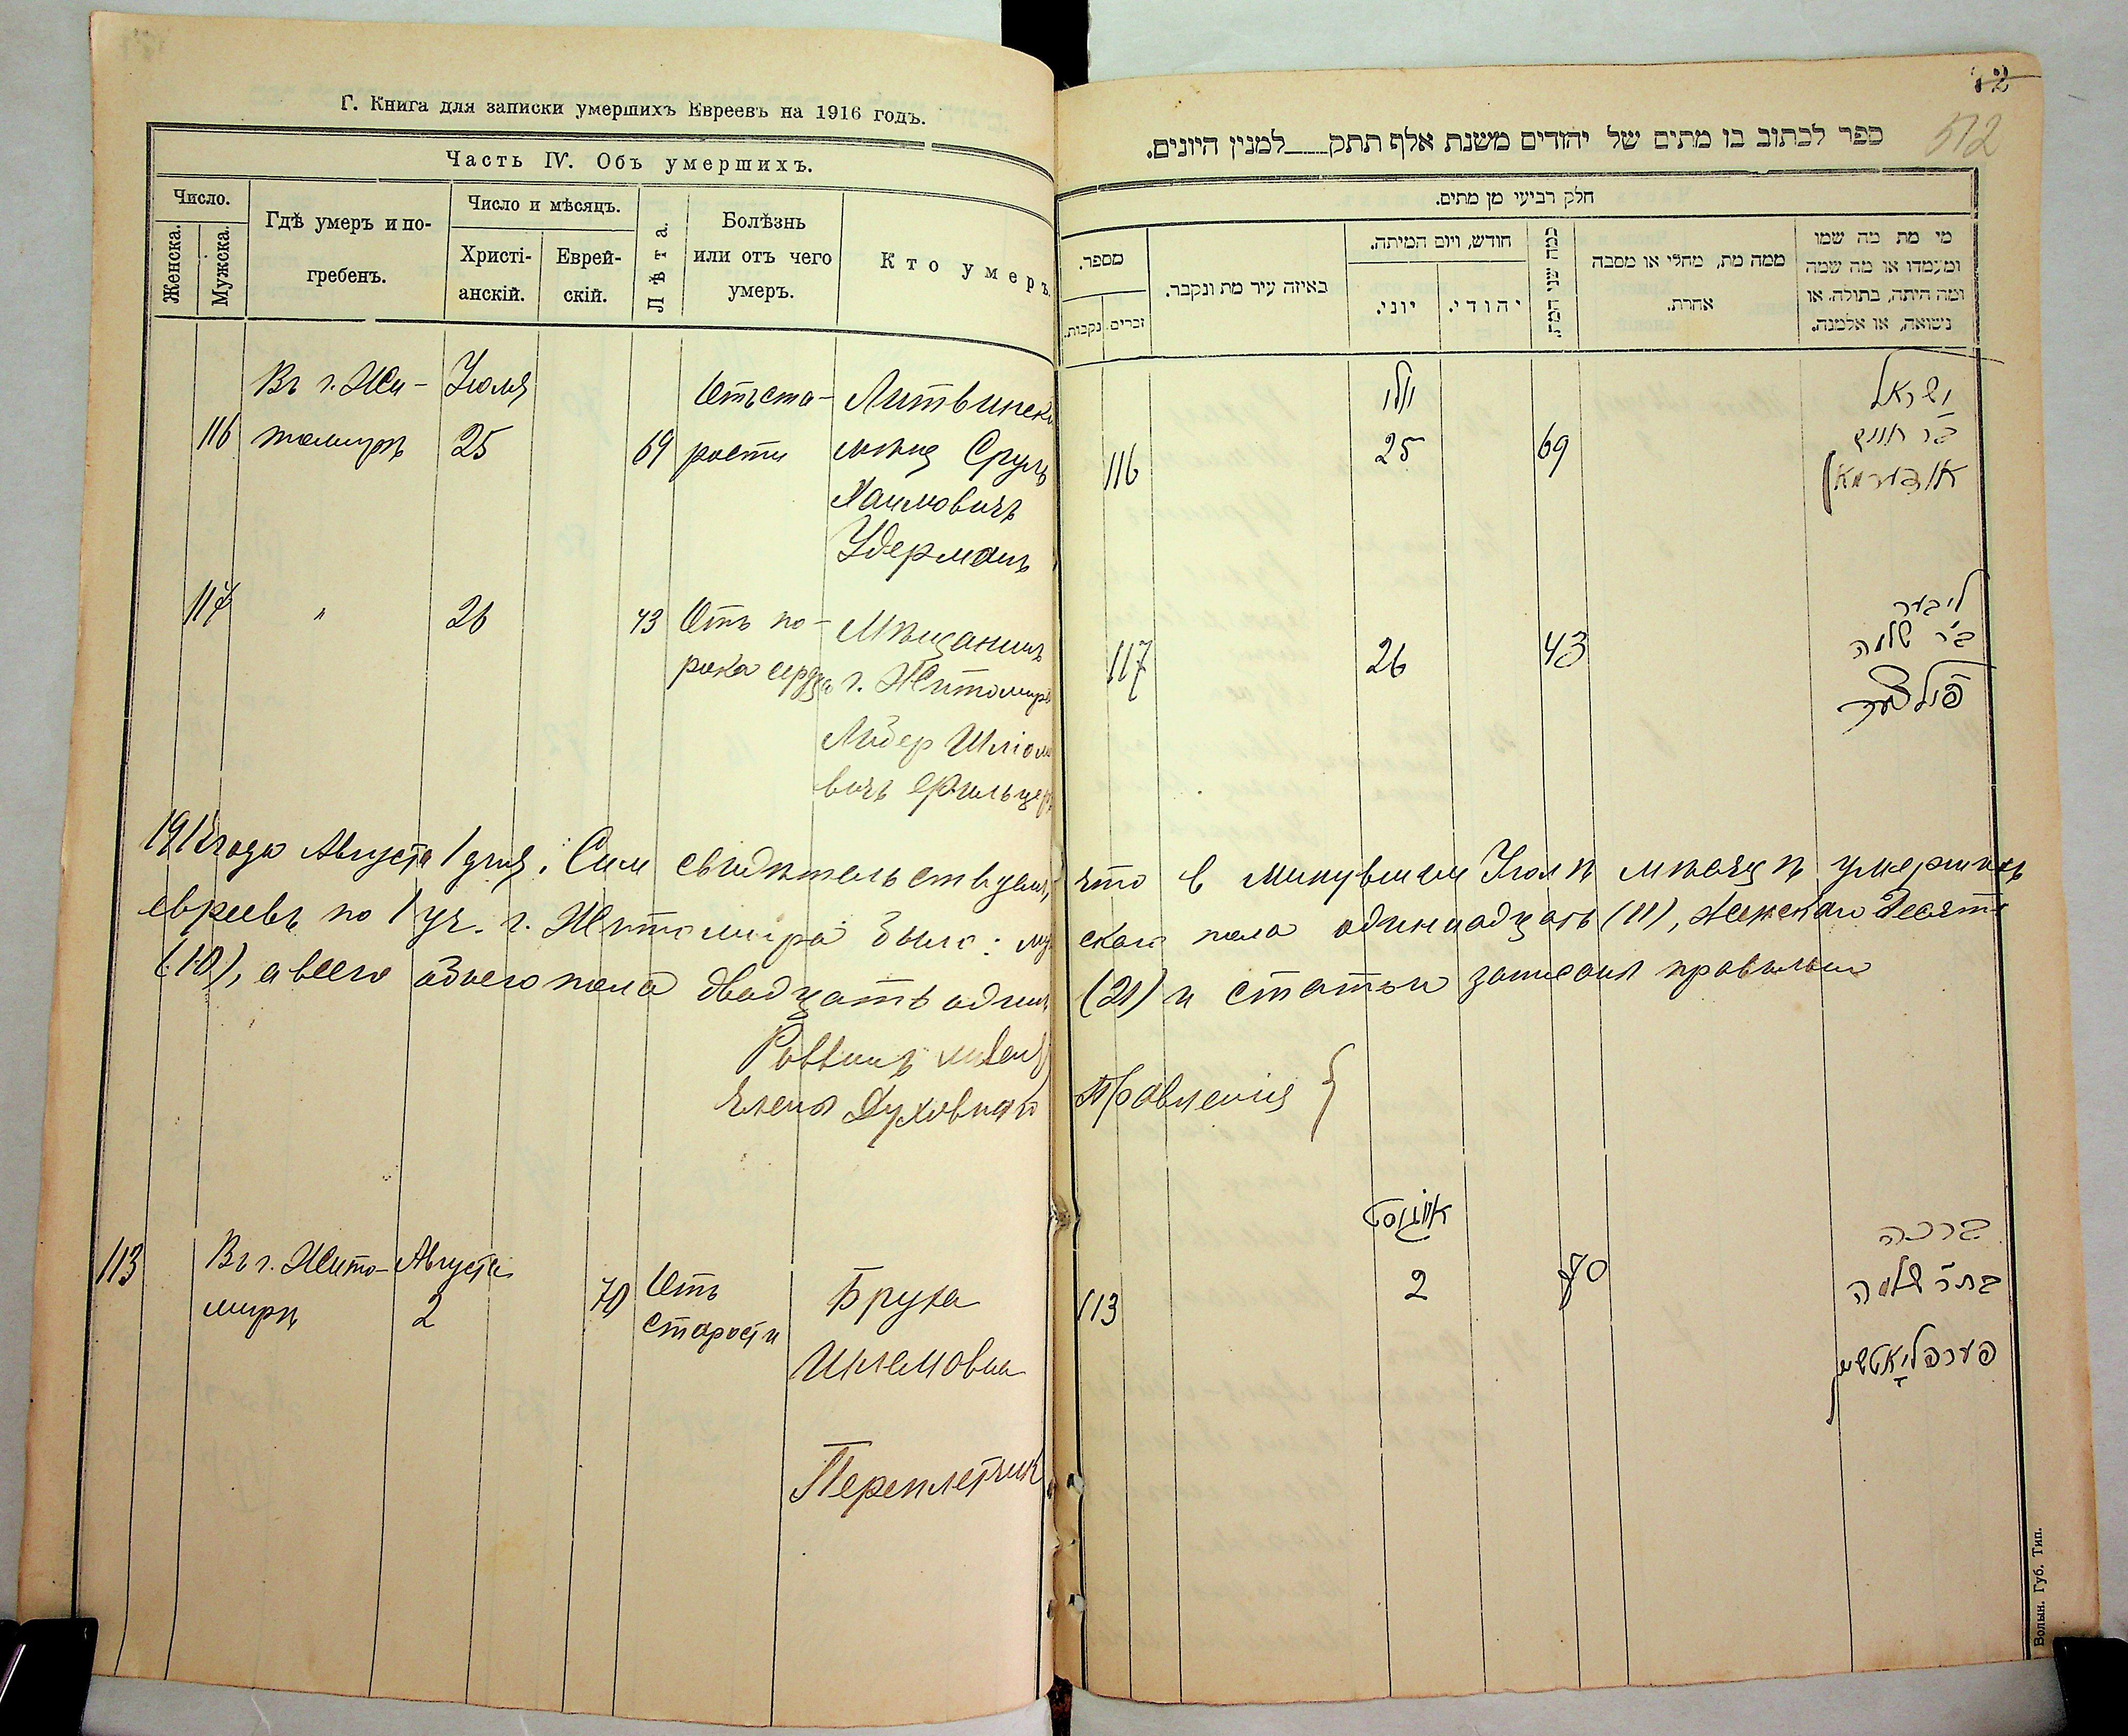 Г. Книга для записки умершихъ Евреевъ на 1916 годъ.
Часть IV. Объ умершихъ.
Число.
Женска.
Мужска.
Гдѣ умеръ и по-
гребенъ.
Число и мѣсяцъ.
Христі-
анскій.
Еврей-
скій.
Лѣта.
Болѣзнь
или отъ чего
умеръ.
Кто умеръ.
Въ г. Жи-
томирѣ
116
Іюля
25
69
Отъ ста-
рости
Литвинск
мѣщ Сруль
Хаимовичъ
Удерманъ
117
"
26
43
Отъ по-
рока сердца
Мѣщанинъ
г. Житомира
Либер Шліомо
вичъ Фильцеръ
года Августа 1 дня. Сим свидѣтельствуемъ, что в минувшем Іюлѣ мѣсяцѣ умершихъ
евреевъ по 1 уч. г. Житомира было: муж скаго пола одиннадцать (11), Женскаго Десять
(10), а всего обоего пола двадцать одинъ (21) и статьи записаны правильно
Раввинъ
Члены Духовнаго Правленія }
113
Въ г. Жито-
мирѣ
Августа
2
70
Отъ
старости
Бруха
Шлемовна
Переплетчик
12
512
ספר לכתוב בו מתים של יהודים משנת אלף תתק___למנין היונים.
חלק רביעי מן מתים.
מספר.
זכרים.
נקבות.
באיזה עיר מת ונקבר.
חודש, ויום המיתה.
יוני.
יהודי.
כמה שני המת.
ממה מת, מחלי או מסבה
אחרת.
מי מת מה שמו
ומעמדו או מה שמה
ומה היתה, בתולה, או
נשואה, או אלמנה.
116
יולי
25
69
ישראל
בר חיים
אודערמאן
117
26
43
ליבער
ב"ר שלמה
פילצער
113
אויגוסט
2
70
ברכה
בת"ר שלמה
Волын. Губ. Тип.